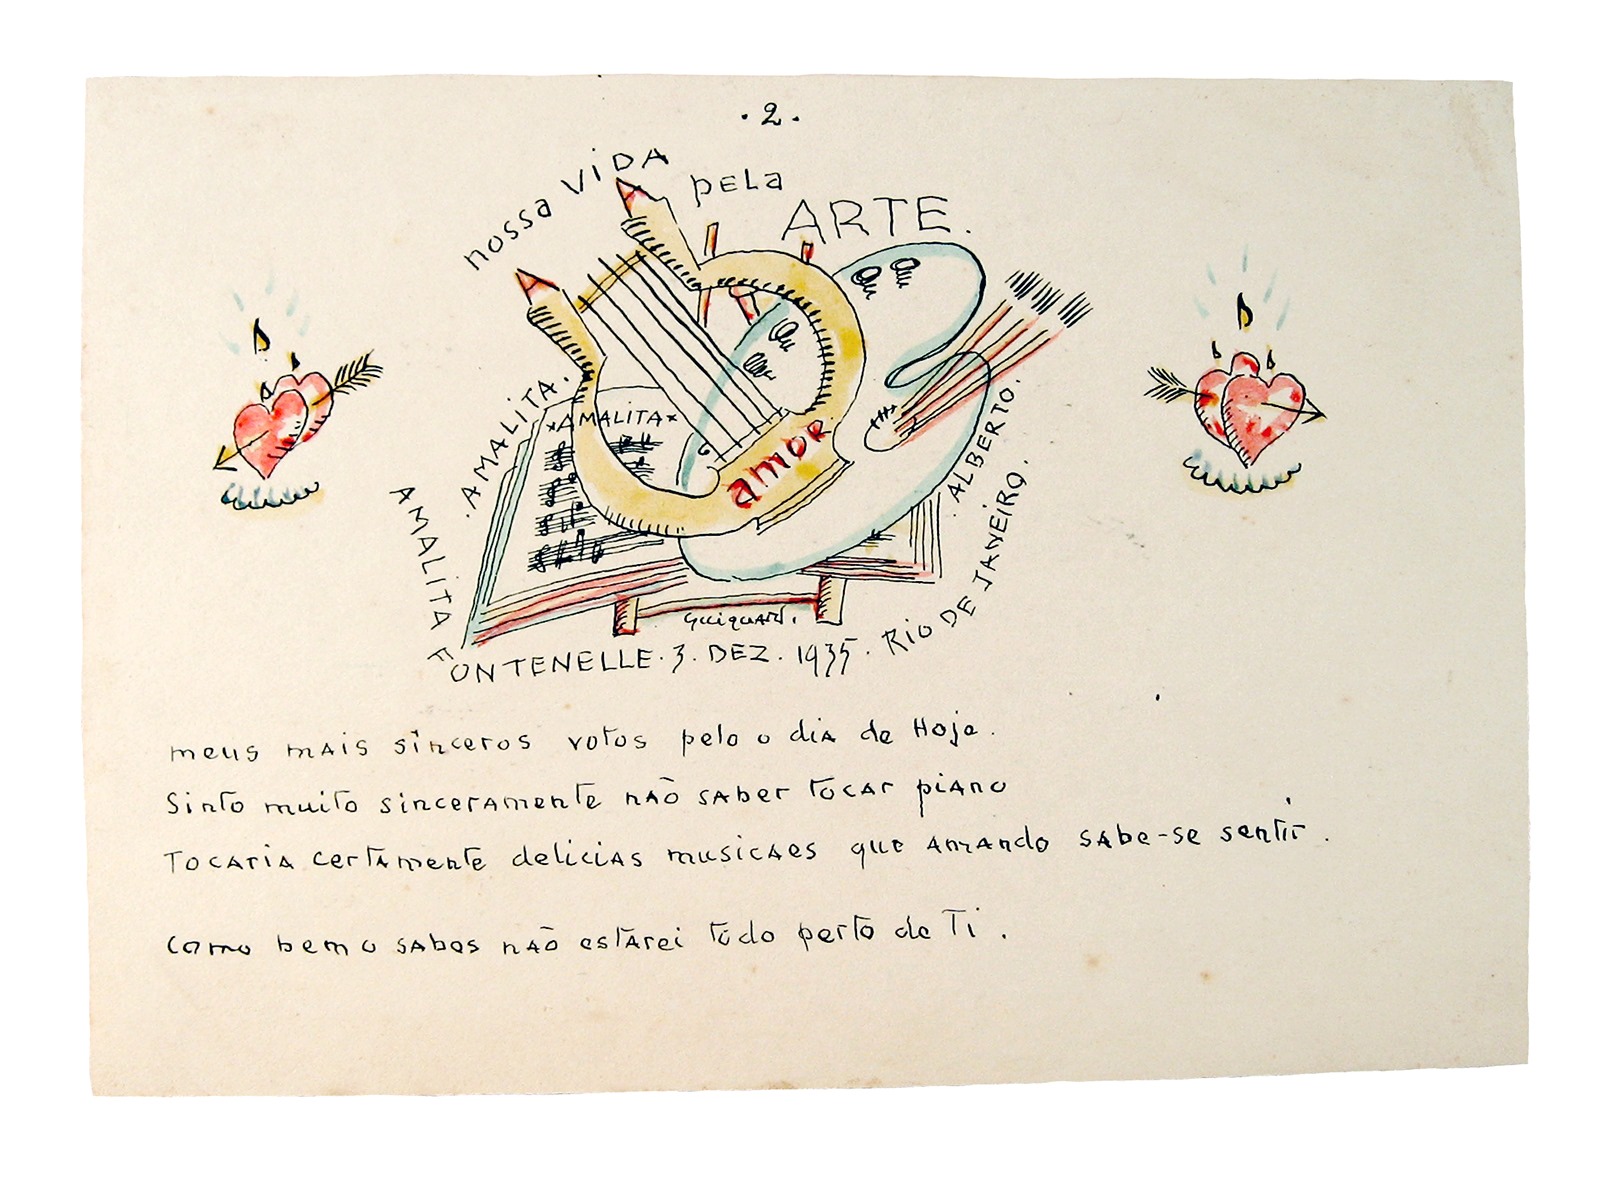 . 2 .
nossa VIDA pela ARTE.
.AMALITA.
*AMALITA*
amor
.ALBERTO.
Guignard.
AMALITA FONTENELLE. 3. DEZ. 1935. RIO DE JANEIRO.
meus mais sinceros votos pelo o dia de Hoje.
Sinto muito sinceramente não saber tocar piano
Tocaria certamente delicias musicaes que amando sabe-se sentir.
como bem o sabes não estarei todo perto de Ti.